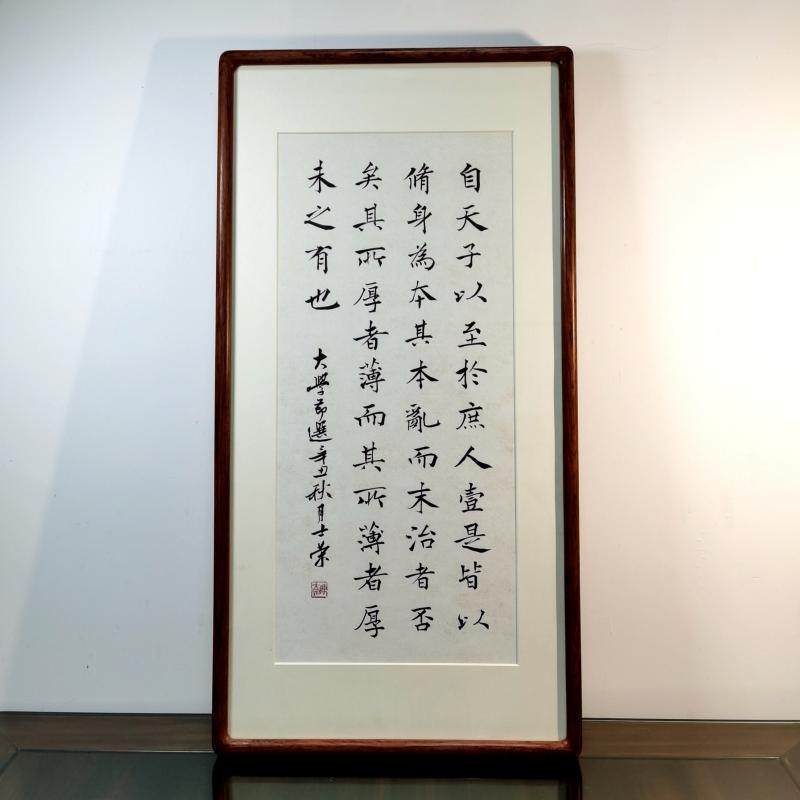 自天子以至於庶人壹是皆以
脩身為本其本亂而末治者否
矣其所厚者薄而其所薄者厚
未之有也
大學節選辛丑秋月士榮